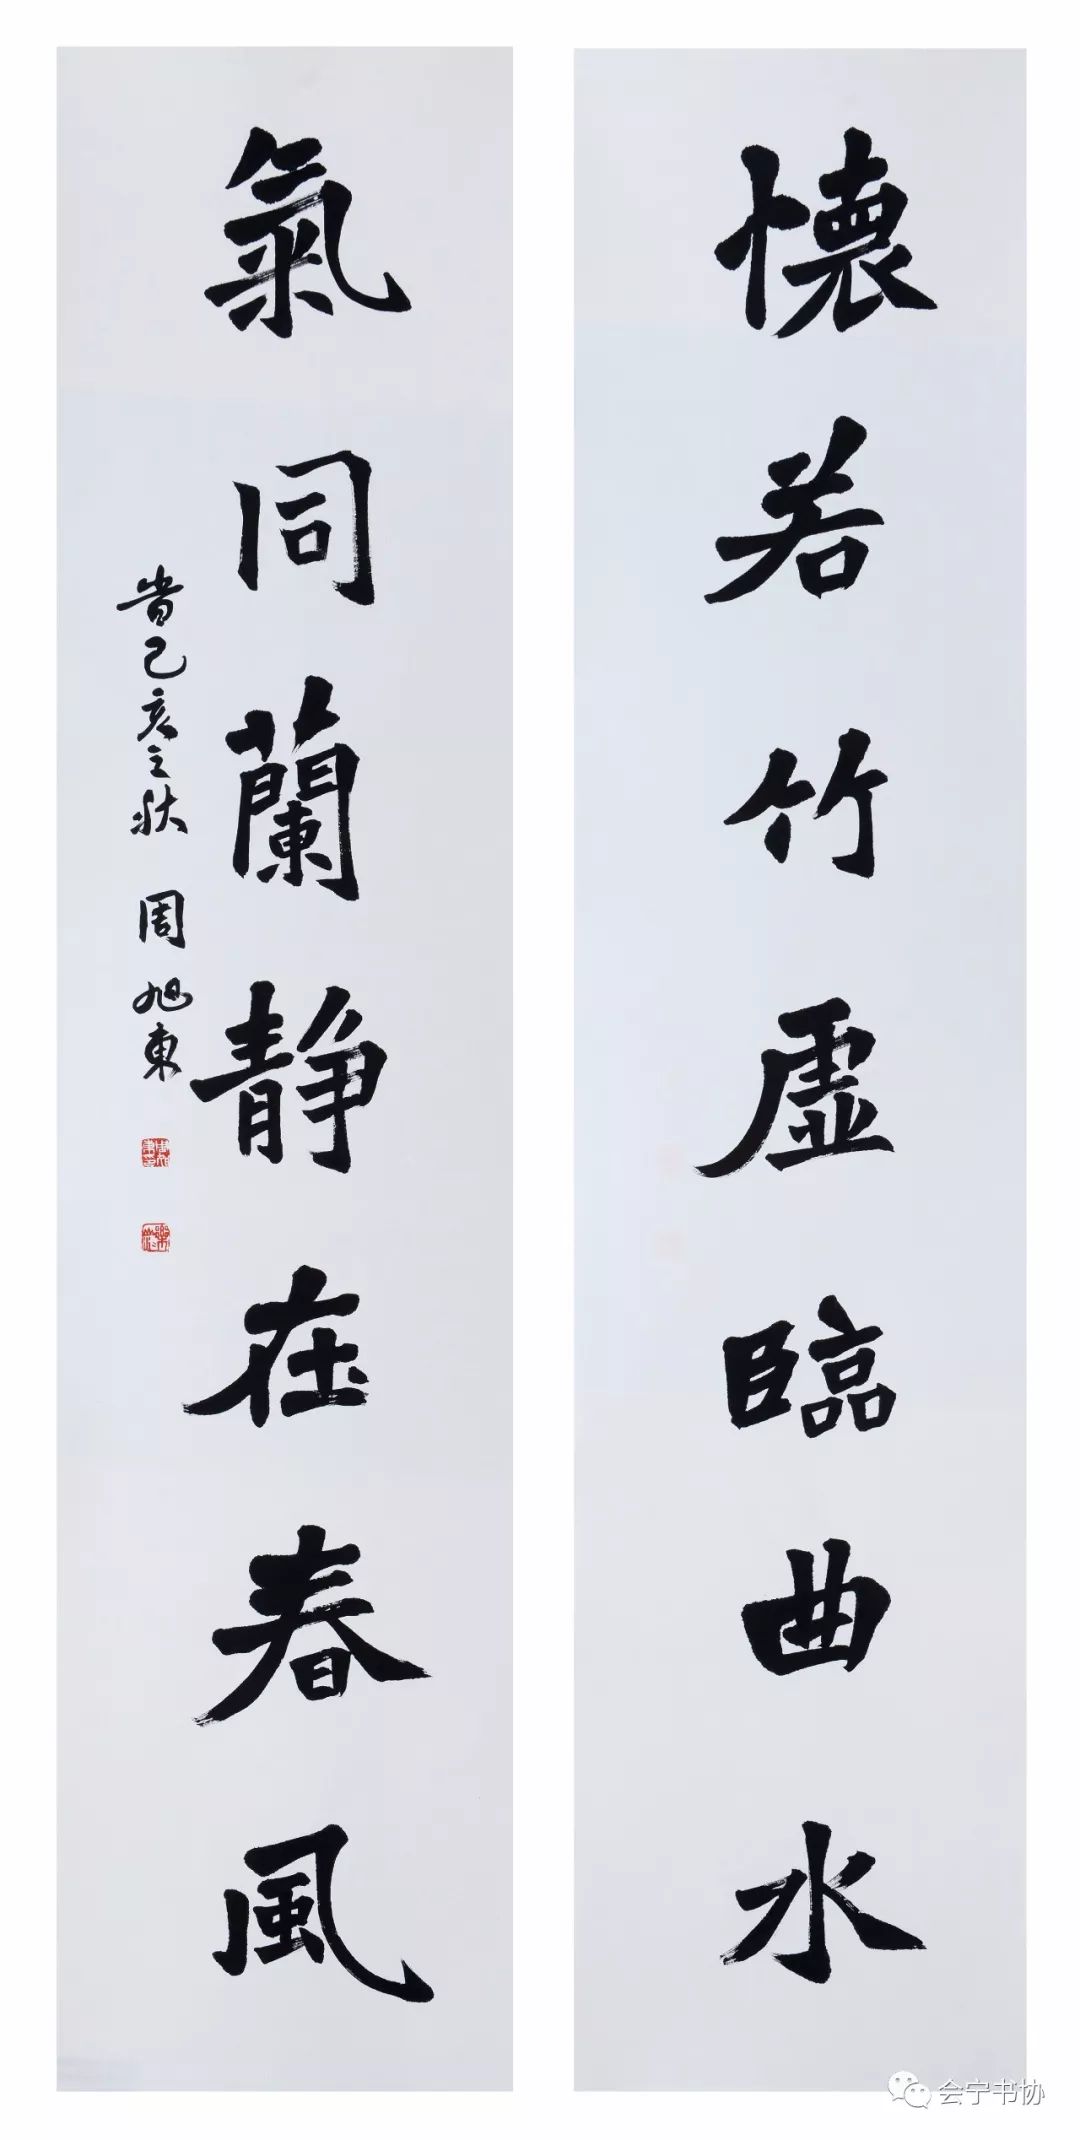 懷若竹虛臨曲水
氣同蘭靜在春風
岁己亥之秋 周旭東
会宁书协